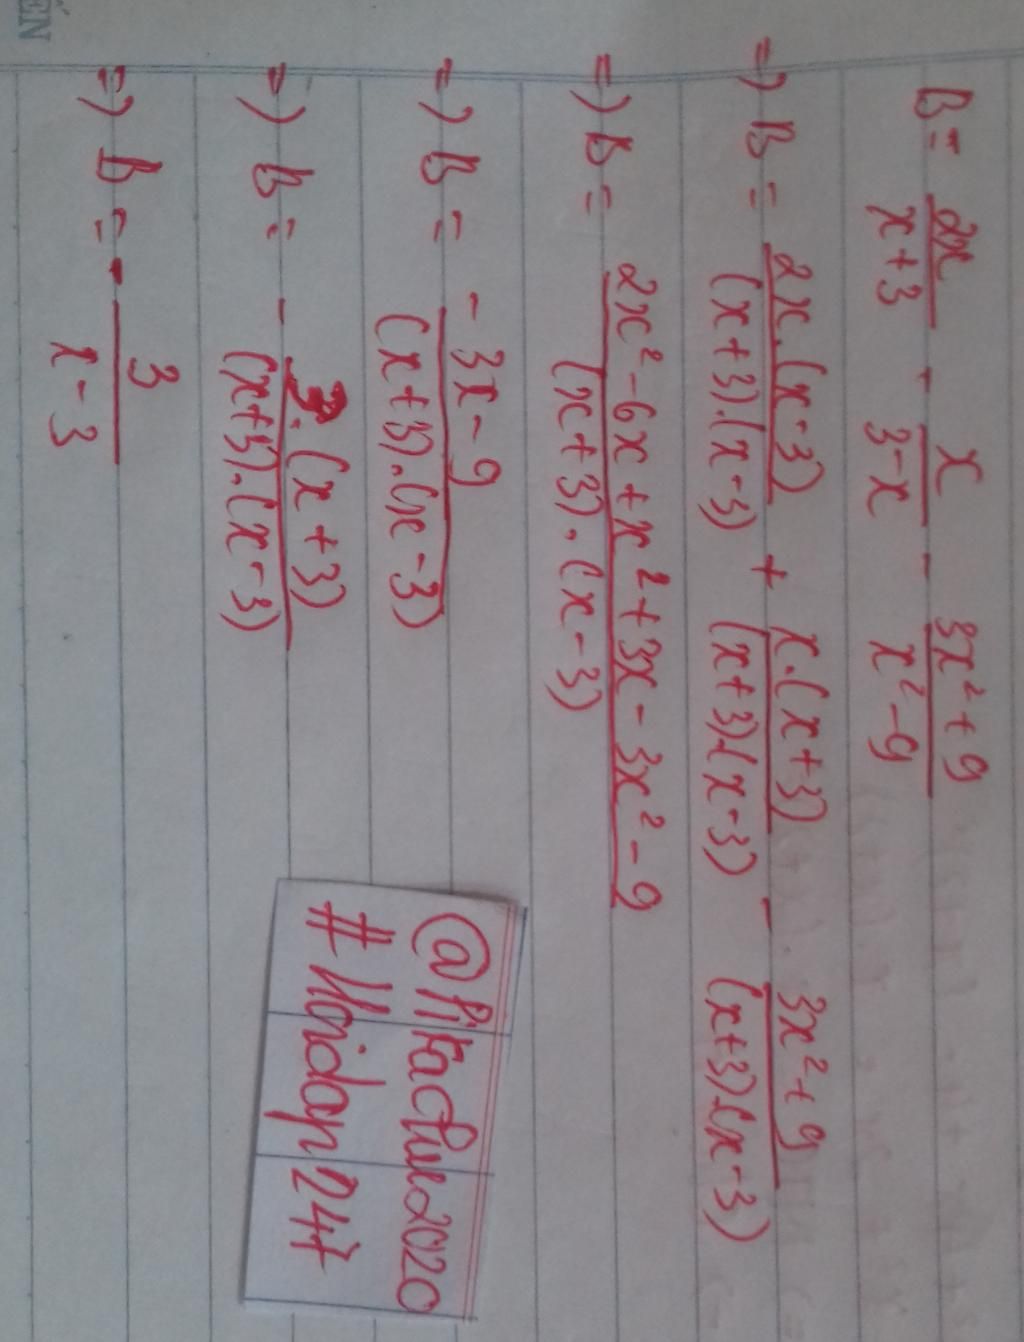 B = 2x/(x+3) - x/(3-x) - (3x²+9)/(x²-9)
=> B = 2x.(x-3)/((x+3).(x-3)) + x.(x+3)/((x+3).(x-3)) - (3x²+9)/((x+3).(x-3))
=> B = (2x²-6x+x²+3x-3x²-9)/((x+3).(x-3))
=> B = (-3x-9)/((x+3).(x-3))
=> B = - 3.(x+3)/((x+3).(x-3))
=> B = - 3/(x-3)
@Pikachu2020
#Hoidap247
ÉN